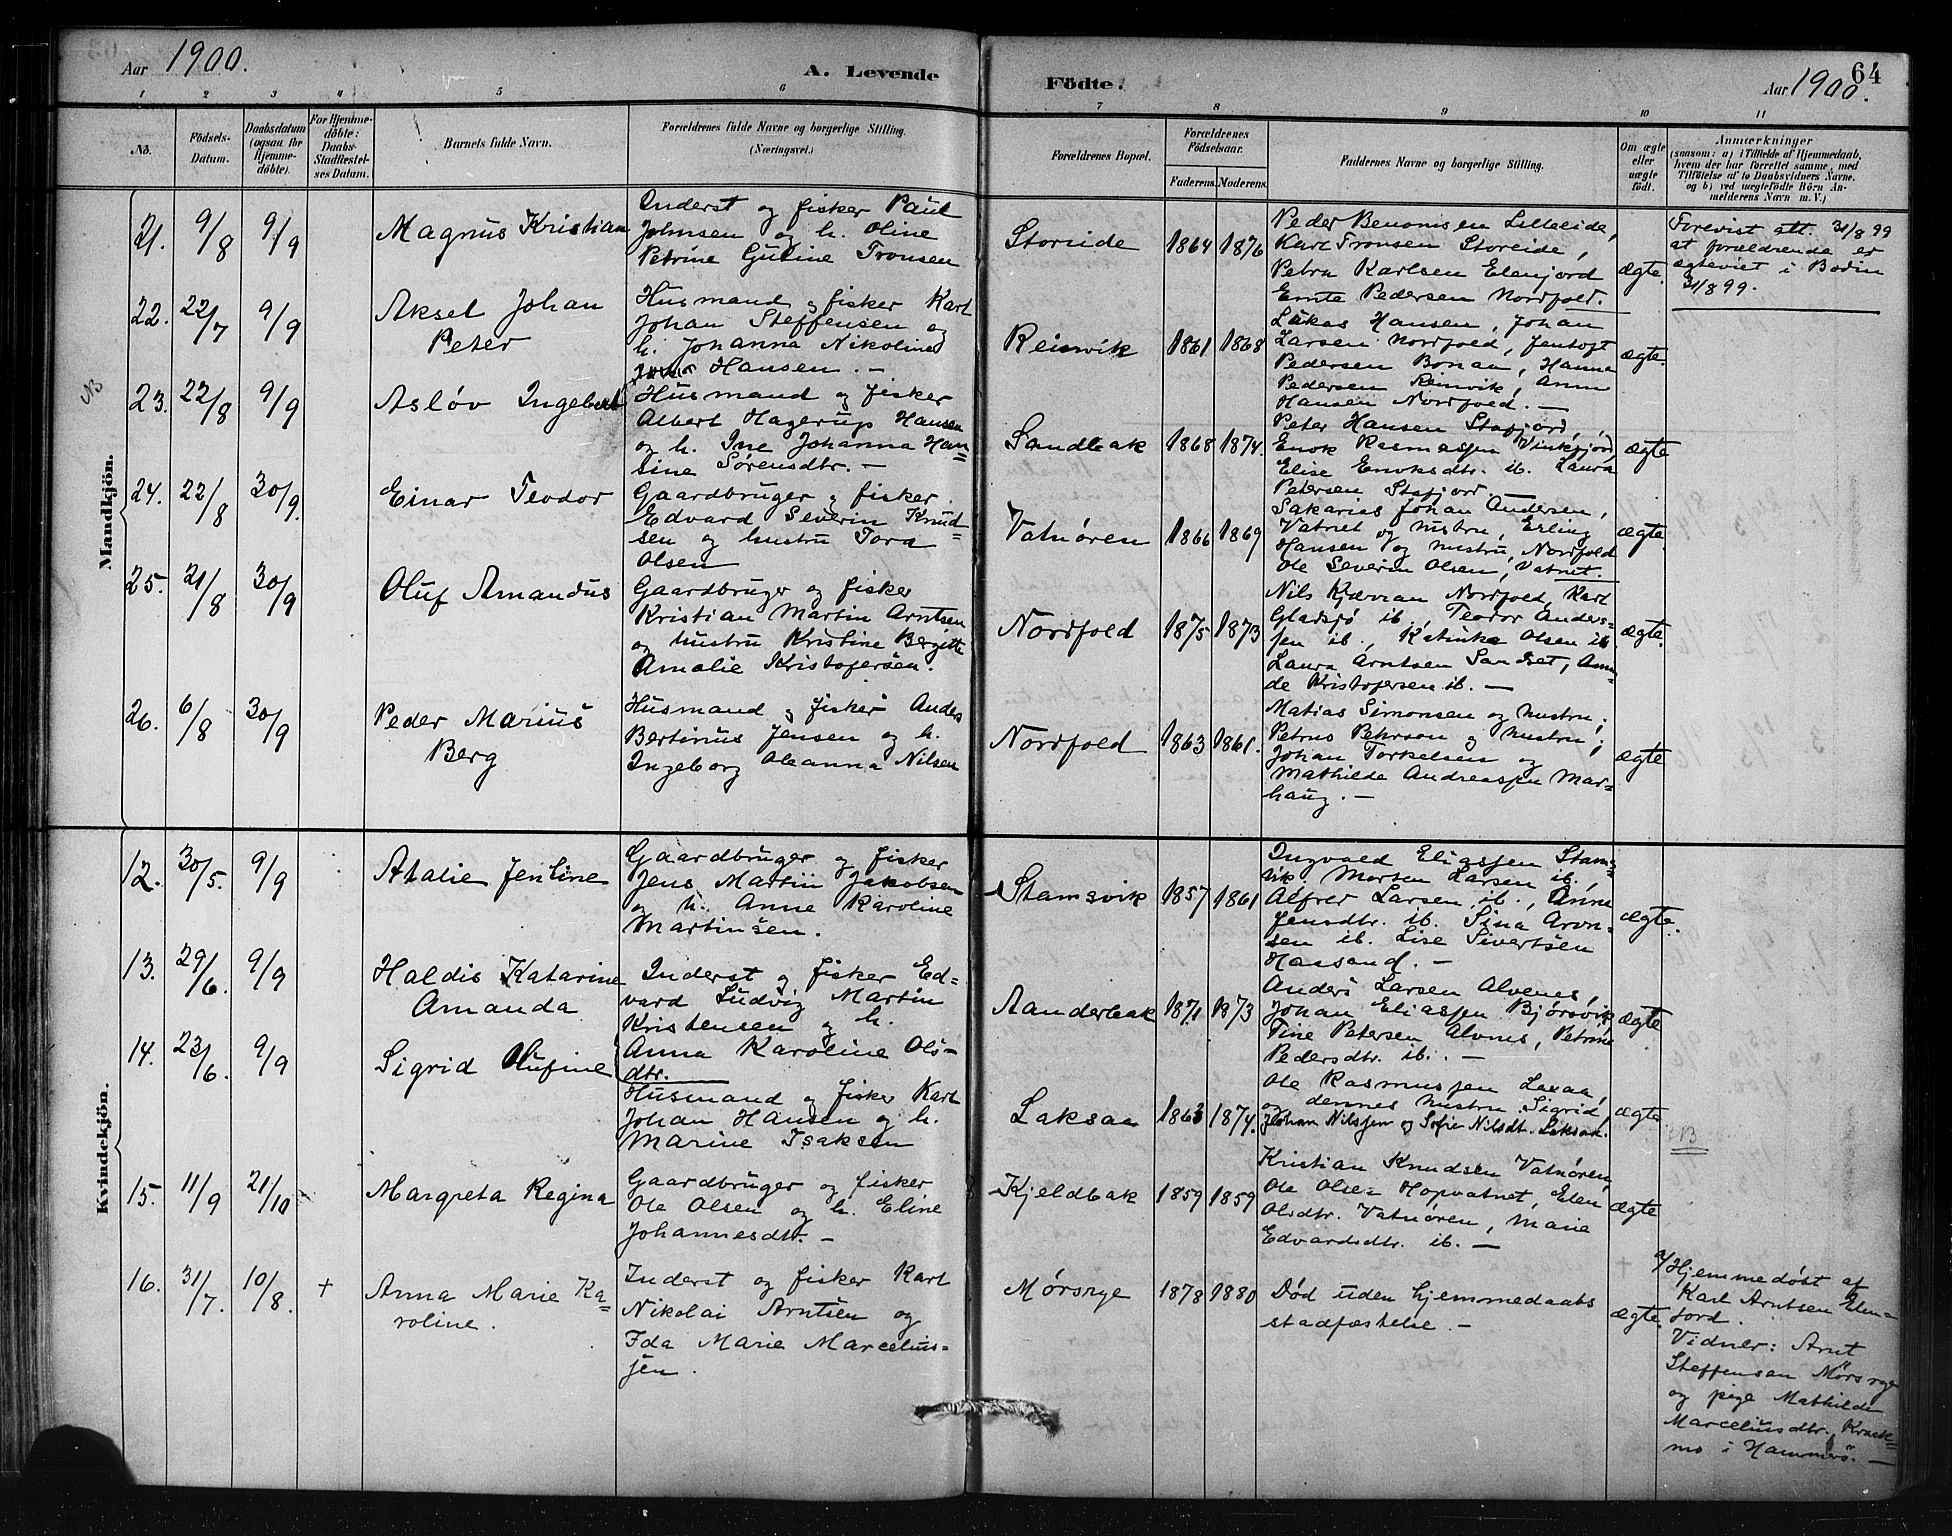 Aar 1900.
A. Levende
Födte.
Aar 1900.
64
1 2 3 4 5 6 7 8 9 10 11
No.
Födsels-
Datum.
Daabsdatum
(ogsaa for
Hjemme-
döbte).
For Hjemme-
döbte:
Daabs-
Stadfæstel-
ses Datum.
Barnets fulde Navn.
Forældrenes fulde Navne og borgerlige Stilling.
(Næringsvei.)
Forældrenes Bopæl.
Forældrenes
Födselsaar.
Faderens. Moderens.
Faddernes Navne og borgerlige Stilling.
Om ægte
eller
uægte
födt.
Anmærkninger
(saasom: a) i Tilfælde af Hjemmedaab,
hvem der har forrettet samme, med
Tilföielse af to Daabsvidners Navne.
og b) ved uægtefödte Börn An-
melderens Navn m. V.)
Mandkjön.
21. 9/8 9/9
Magnus Kristian
Inderst og fisker Paul
Johnsen og h. Oline
Petrine Gurine Tronsen
Storeide
1864 1876
Peder Benonisen Lilleeide,
Karl Tronsen Storeide,
Petra Karlsen Elenjord
Emte Pedersen Nordfold.
ægte.
Forevist att. 31/8 99
at forældrende er
ægteviet i Bodin
31/8 99.
22. 22/7 9/9
Aksel Johan
Peter
Husmand og fisker Karl
Johan Steffensen og
h. Johanna Nikoline
Hansen. —
Reinvik
1861 1868
Lukas Hansen, Johan
Larsen Nordfold, Jentoft
Pedersen Bonaa, Hanna
Pedersen Reinvik, Anna
Hansen Nordfold. —
ægte.
NB
23. 22/8 9/9
Asløv Ingebert
Husmand og fisker
Albert Hagerup Hansen
og h. Ine Johanna Han=
sine Sørensdtr. —
Sandbak
1868 1874.
Peter Hansen Stafjord,
Enok Rasmussen Vinkfjord,
Elise Enoksdtr. ib. Laura
Petersen Stafjord —
ægte
24. 22/8 30/9.
Einar Teodor
Gaardbruger og fisker
Edvard Severin Knud=
sen og hustru Tora
Olsen
Vatnøren
1866 1869
Sakarias Johan Andersen,
Vatnet og hustru, Erling
Hansen og hustru, Nordfold
Ole Severin Olsen, Vatnet.
ægte.
25. 21/8 30/9
Oluf Amandus
Gaardbruger og fisker
Kristian Martin Arntsen
og hustru Kristine Bergitte
Amalie Kristofersen.
Nordfold
1875 1873
Nils Kjærran Nordfold, Karl
Gladsjø ib., Teodor Anders=
sen ib., Katinka Olsen ib
Laura Arntsen Sandset, Aman=
de Kristofersen ib. —
ægte.
26. 6/8 30/9
Peder Marius
Berg
Husmand og fisker Anders
Bertinus Jensen og h.
Ingeborg Oleanna Nilsen
Nordfold
1863 1861.
Matias Simonsen og hustru;
Petrus Pehrson og hustru;
Johan Torkelsen og
Mathilde Andreassen Mar=
haug. —
ægte
Kvindekjön.
12. 30/5. 9/9
Atalie Jentine
Gaardbruger og fisker
Jens Martin Jakobsen
og h. Anne Karoline
Martinsen.
Stamsvik
1857 1861
Ingvald Eliassen Stams=
vik. Morten Larsen ib.,
Alfred Larsen ib., Anna
Jensdtr. ib. Sina Aron=
sen ib. Lise Sivertsen
Haasand. —
ægte.
13. 29/6. 9/9
Haldis Katarine
Amanda
Inderst og fisker Ed=
vard Ludvig Martin
Kristensen og h.
Anna Karoline Ols=
dtr.
Aanderbak
1871 1873
Anders Larsen Alvenes,
Johan Eliassen Bjørsvik
Tine Petersen Alvnes, Petrine
Pedersdtr. ib. —
ægte
14. 23/6. 9/9
Sigrid Olufine
Husmand og fisker Karl
Johan Hansen og h.
Marine Isaksen
Laksaa
1863 1874.
Ole Rasmussen Laxaa,
og dennes hustru Sigrid,
Johan Nilssen og Sofie Nilsdt. Laksaa.
ægte
NB
15. 11/9 21/10
Margreta Regina
Gaardbruger og fisker
Ole Olsen og h. Eline
Johannesdtr. —
Kjeldbak
1859 1859
Kristian Knudsen Vatnøren,
Ole Olsen Hopvatnet, Elen
Olsdtr. Vatnøren, Marie
Edvardsdtr. ib. —
ægte
16. 31/7. 10/8. +
Anna Marie Ka=
roline.
Inderst og fisker Karl
Nikolai Arntsen og
Ida Marie Marcelius=
sen.
Mørsrye
1878 1880
Død uden hjemmedaabs
stadfæstelse. —
ægte.
a/ Hjemmedøbt af
Karl Arntsen Elen=
jord.
Vidner: Arnt
Steffensen Mørsrye
og pige Mathilde
Marceliusdtr. Kraak=
mo i Hammerø. —